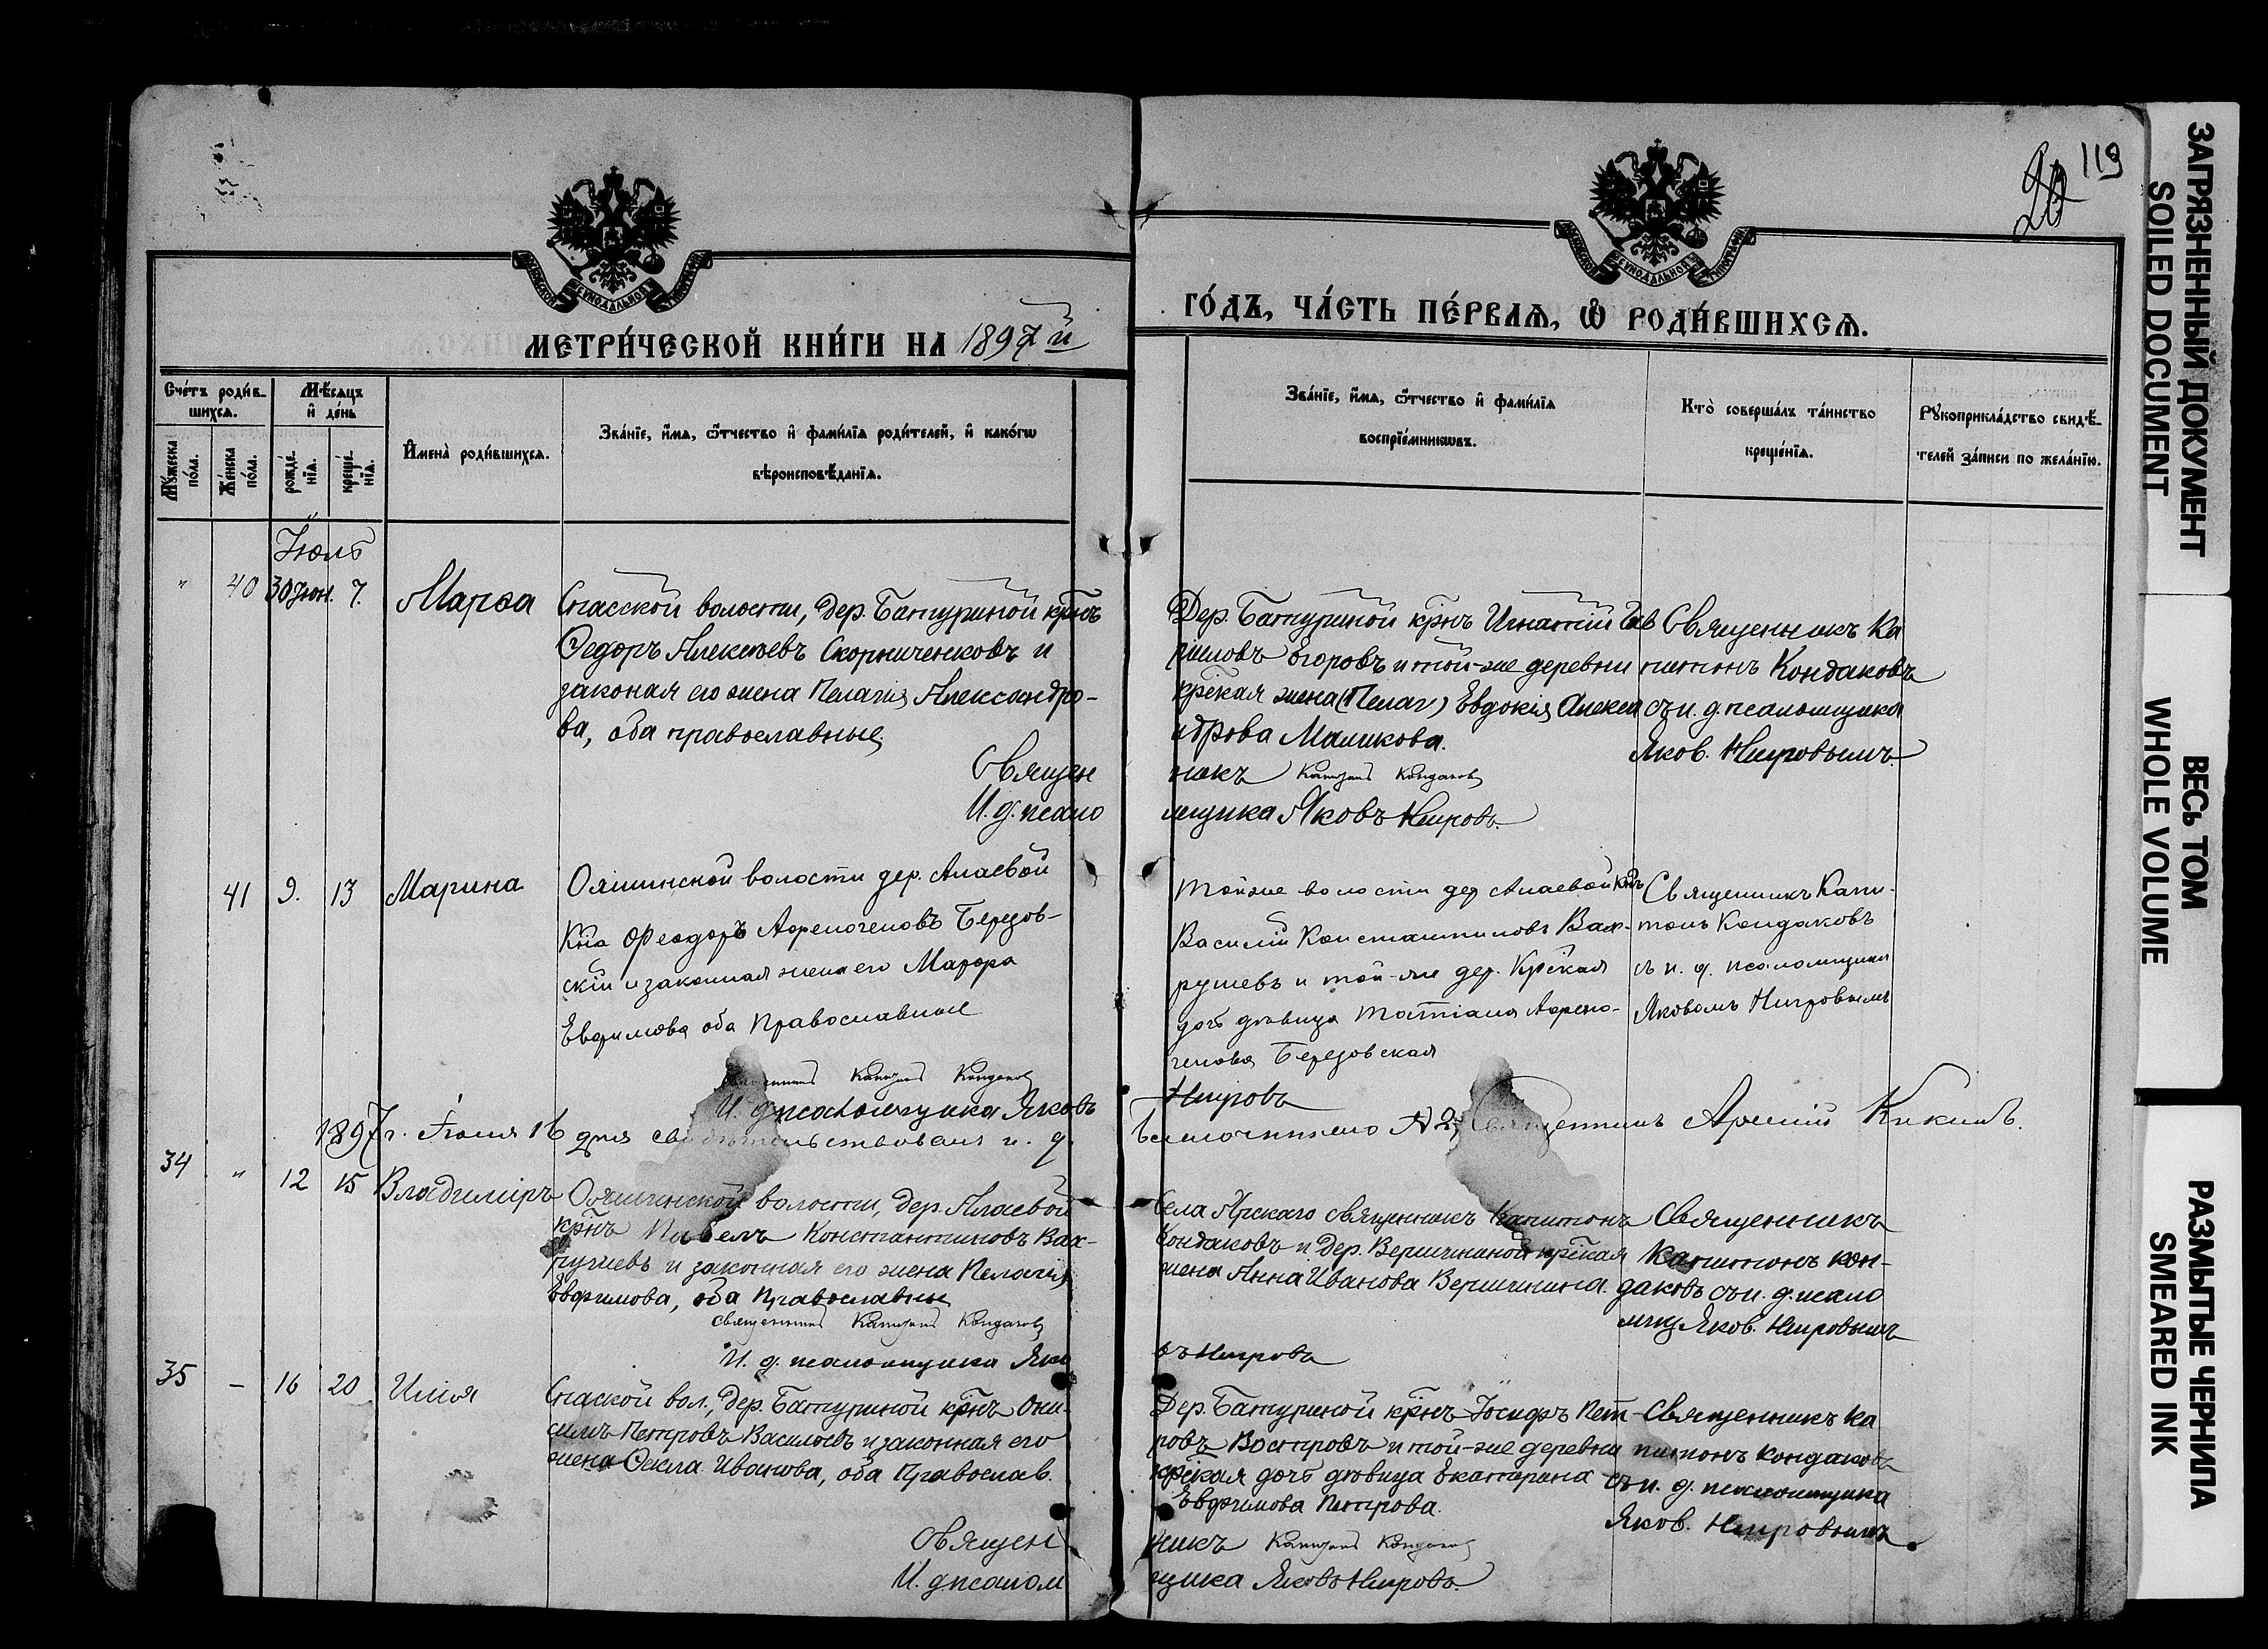 119
20
МЕТРИ́ЧЕСКОЙ КНИ́ГИ НА 1897 й
ГО́ДЪ, ЧА́СТЬ ПЕ́РВАЯ, Ѡ РОДИ́ВШИХСЯ.
Сче́тъ роди́в-
шихся.
Мѣ́сяцъ
и де́нь
Му́жеска
по́ла.
Же́нска
по́ла.
рожде́-
нїя.
креще́-
нїя.
Имена̀ роди́вшихся.
Зва́нїе, и́мя, ѻ́тчество и фами́лїя роди́телей, и како́гѡ
вѣроисповѣ́данїя.
Зва́нїе, и́мя, ѻ́тчество и фами́лїя
воспрїе́мникѡвъ.
Кто̀ соверша́лъ та́инство
креще́нїя.
Рꙋкоприкла́дство свидѣ́-
телей за́писи по жела́нїю.
Іюль
" 40 30 Іюн. 7. Марѳа
Спасской волости, дер. Батуриной крнъ
Ѳедоръ Алексѣевъ Скорниченковъ и
законая его жена Пелагія Александро-
ва, оба православные
Священ
И. д. псало
Дер. Батуриной крнъ Игнатій Гав
риловъ Егоровъ и той-же деревни
крская жена (Пелаг) Евдокія Алекса
ндрова Маликова.
никъ Капитонъ Кондаковъ
мщика Яковъ Нигровъ
Священникъ Ка
питонъ Кондаковъ
съ и. д. псаломщика
Яков. Нигровымъ
41 9. 13 Марина
Ояшинской волости дер. Алаевой
Кна Феодоръ Афреногеновъ Березов-
скій и законная жена его Марфа
Евфимова оба Православные
Священникъ Капитонъ Кондаковъ
И. д. псаломщика Яковъ
Тойже волости дер Алаевой кнъ
Василій Константиновъ Вах-
рушевъ и той-же дер. Крская
дочь дѣвица Татіана Афрено-
генова Березовская
Нигровъ
Священникъ Капи-
тонъ Кондаковъ
съ и. д. псаломщика
Яковомъ Нигровымъ
1897 г. Іюля 16 дня свидѣтельствовалъ и. д.
Благочиннаго № Священникъ Арсеній Кикинъ.
34 " 12 15 Владиміръ
Ояшинской волости, дер. Алаевой
крнъ Павелъ Константиновъ Вах-
рушевъ и законная его жена Пелагія
Евфимова, оба Православные
Священникъ Капитонъ Кондаковъ
И. д. псаломщика Яко
Села Ярскаго священникъ Капитонъ
Кондаковъ и дер. Вершининой крская
жена Анна Иванова Вершинина.
въ Нигровъ
Священникъ
Капитонъ Кон-
даковъ съ и. д. псало
мщ Яков. Нигровымъ
35 – 16 20 Илія
Спаской вол., дер. Батуриной крнъ Они-
симъ Петровъ Василевъ и законная его
жена Ѳекла Иванова, оба Православ.
Священ
И. д. псалом
Дер. Батуриной крнъ Іосифъ Пет-
ровъ Востровъ и той-же деревни
крская дочь дѣвица Екатерина
Евфимова Петрова.
никъ Капитонъ Кондаковъ
щика Яковъ Нигровъ
Священникъ Ка
питонъ Кондаковъ
съ и. д. псаломщика
Яков. Нигровымъ
ЗАГРЯЗНЕННЫЙ ДОКУМЕНТ
SOILED DOCUMENT
ВЕСЬ ТОМ
WHOLE VOLUME
РАЗМЫТЫЕ ЧЕРНИЛА
SMEARED INK